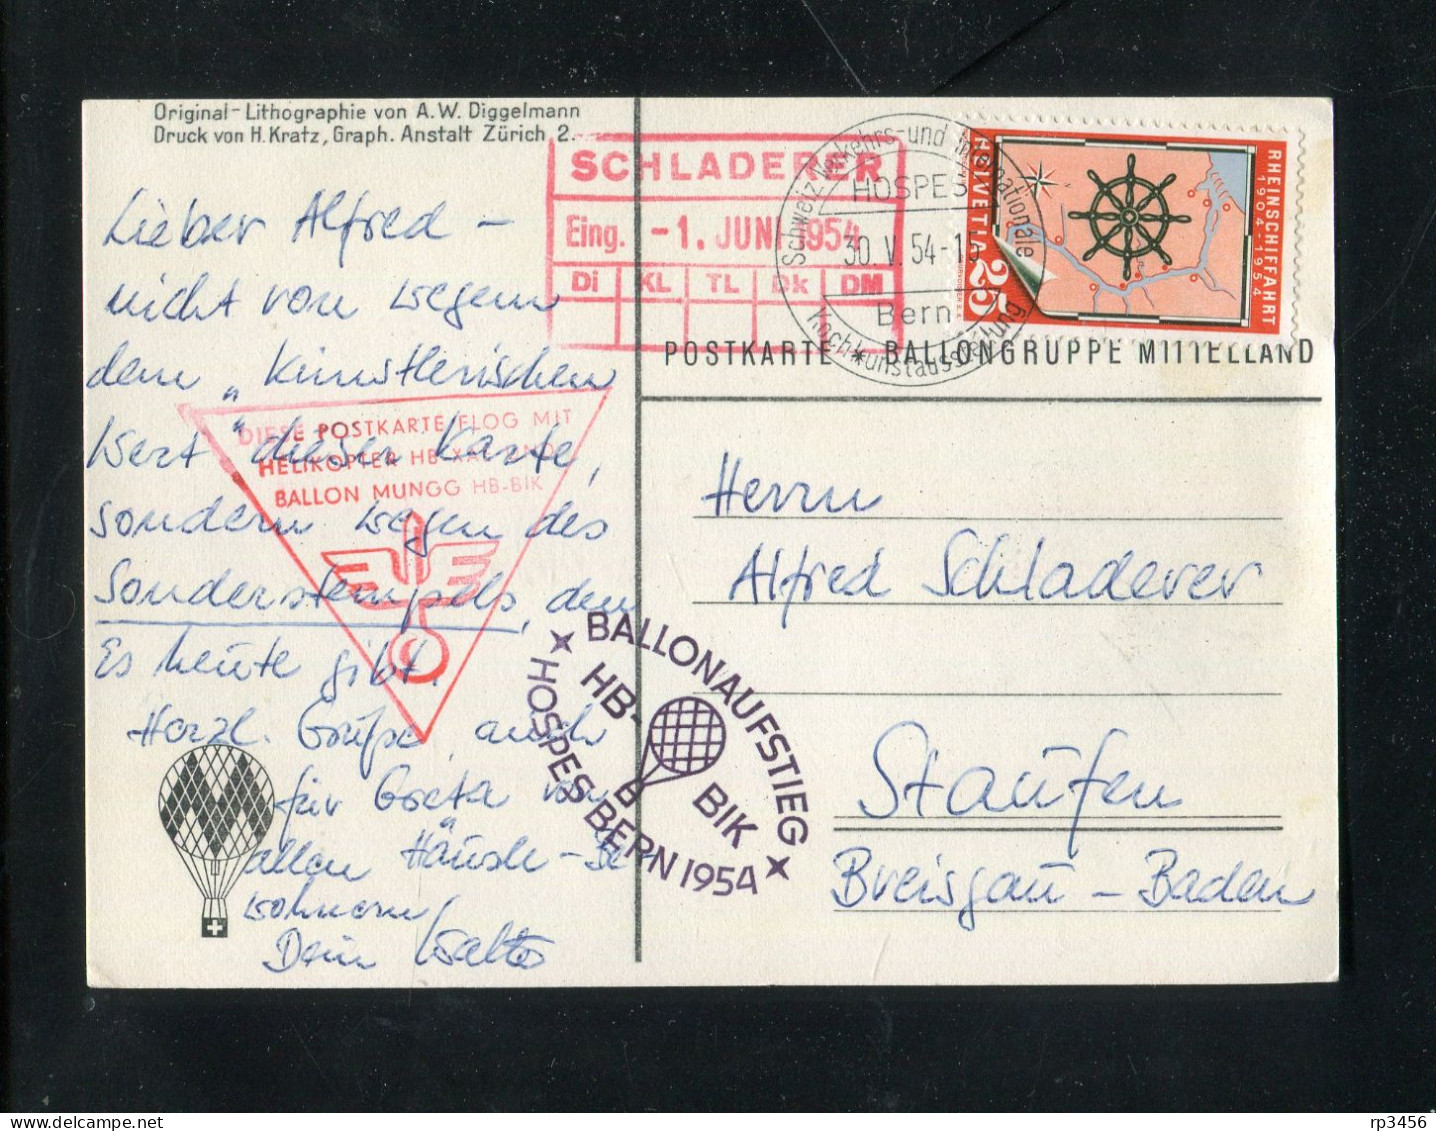 Original-Lithographie von A.W. Diggelmann
Druck von H. Kratz, Graph. Anstalt Zürich 2.
SCHLADERER
Eing. -1. JUNI 1954
Di KL TL Dk DM
Schweiz. Verkehrs- und Internationale
HOSPES
30. V. 54-15
Bern
Kochkunstausstellung
RHEINSCHIFFAHRT
1904-1954
HELVETIA 25
POSTKARTE BALLONGRUPPE MITTELLAND
Lieber Alfred –
nicht von wegen
dem „Künstlerischen
Wert" dieser Karte,
sondern wegen des
Sonderstempels, den
Es heute gibt.
Herzl. Grüße, auch
für Greta von
allen Häusle-Be
wohnern,
Dein Walter
DIESE POSTKARTE FLOG MIT
HELIKOPTER HB-XAL UND
BALLON MUNGG HB-BIK
BALLONAUFSTIEG
HOSPES-BERN 1954
HB-
BIK
Herrn
Alfred Schladerer
Staufen
Breisgau – Baden
rp3456